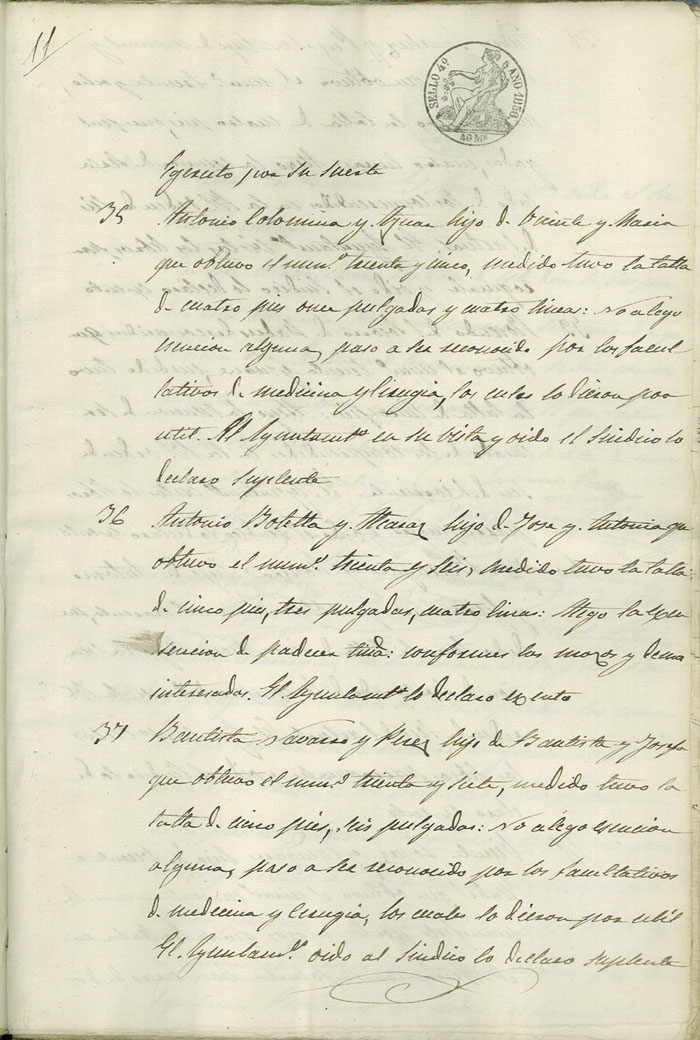 11
SELLO 4º AÑO 1856.
40 Ms
Egercito por su suerte
35 Antonio Colomina y hijo de Vicente y Maria
que obtuvo el num.º treinta y cinco, medido tuvo la talla
de cuatro pies once pulgadas y cuatro lineas: No alego
esencion alguna, paso a ser reconocido por los facul
tativos de medicina y Cirugia, los cuales lo dieron por
util. El Ayuntamto en su vista y oido el Sindico lo
declaro Suplente
36 Antonio Botella y hijo de Jose y Antonia que
obtuvo el num.º treinta y seis, medido tuvo la talla
de cinco pies, tres pulgadas, cuatro lineas: Alego la
de padecer tiña: conformes los mozos y demas
interesados. El Ayuntamto lo declaro exento
37 Bautista Navarro y Perez hijo de Bautista y Josefa
que obtuvo el num.º treinta y siete, medido tuvo la
talla de cinco pies, seis pulgadas: No alego esencion
alguna, paso a ser reconocido por los facultativos
de medicina y Cirugia, los cuales lo dieron por util
El Ayuntam.to oido al Sindico lo declaro Suplente